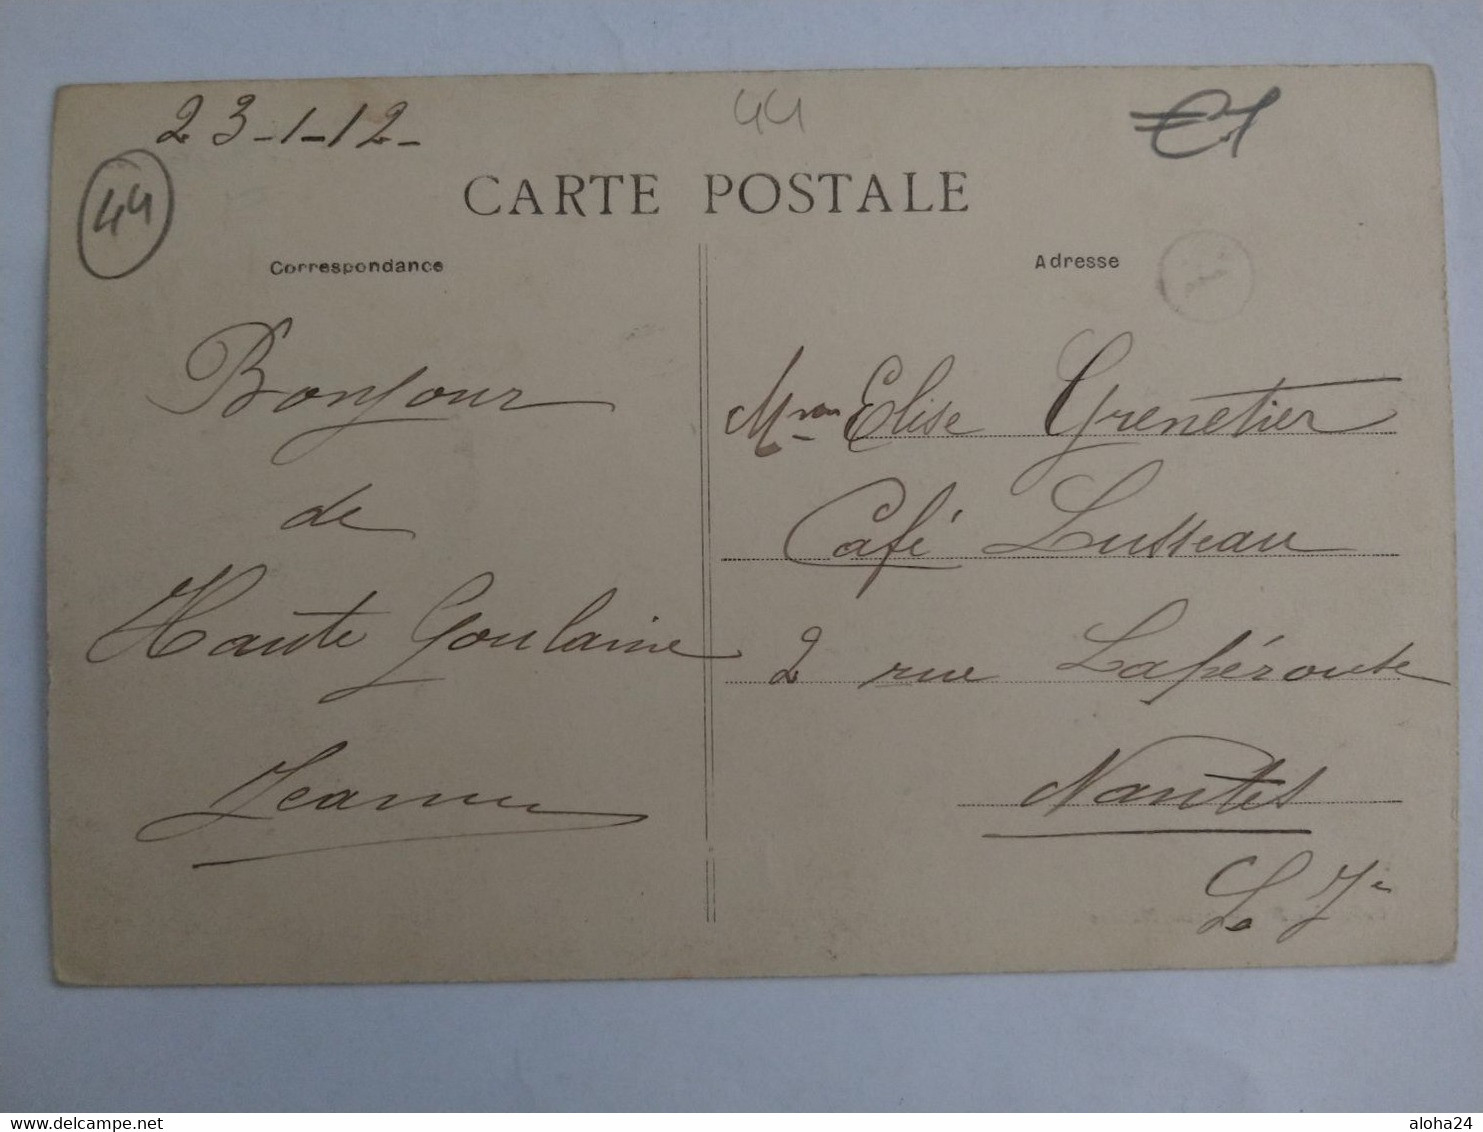 23-1-12-
44
44
CARTE POSTALE
Correspondance
Adresse
Bonjour
de
Haute Goulaine
Jeanne
Mme Elise Grenetier
Café Lusseau
2 rue Lapérouse
Nantes
L. Ire
delcampe.net
aloha24